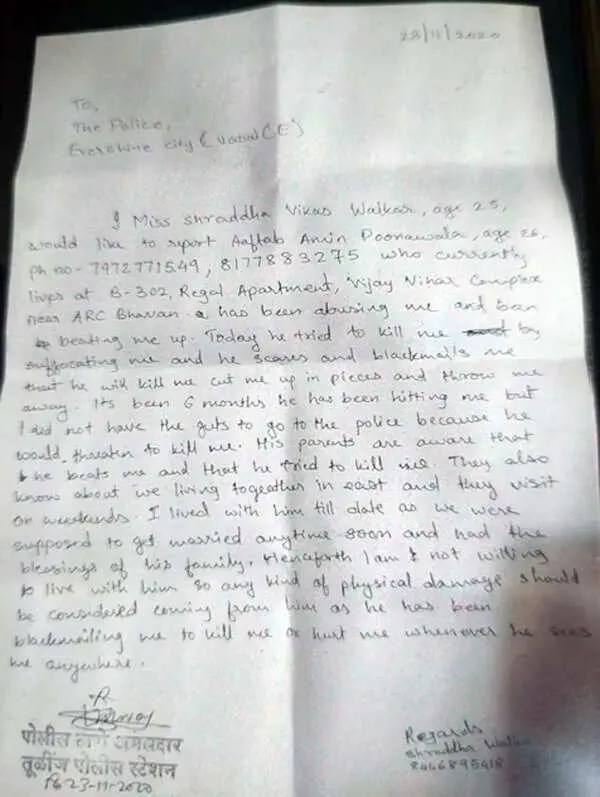 23/11/2020
To,
The Police,
Evershine city (Vasai (E)
I Miss Shraddha Vikas Walkar, age 25,
would like to report Aaftab Amin Poonawala, age 26,
ph no- 7972771549, 8177883275 who currently
lives at B-302, Regal Apartment, Vijay Vihar Complex
near ARC Bhavan has been abusing me and been
beating me up. Today he tried to kill me by
suffocating me and he scares and blackmails me
that he will kill me cut me up in pieces and throw me
away. Its been 6 months he has been hitting me but
I did not have the guts to go to the police because he
would threaten to kill me. His parents are aware that
he beats me and that he tried to kill me. They also
know about we living together in east and they visit
on weekends. I lived with him till date as we were
supposed to get married anytime soon and had the
blessings of his family. Henceforth I am not willing
to live with him so any kind of physical damage should
be considered coming from him as he has been
blackmailing me to kill me or hurt me whenever he sees
me anywhere.
पोलीस ठाणे अमलदार
तूळींज पोलीस स्टेशन
23-11-2020
Regards
Shraddha Walkar
8466895418